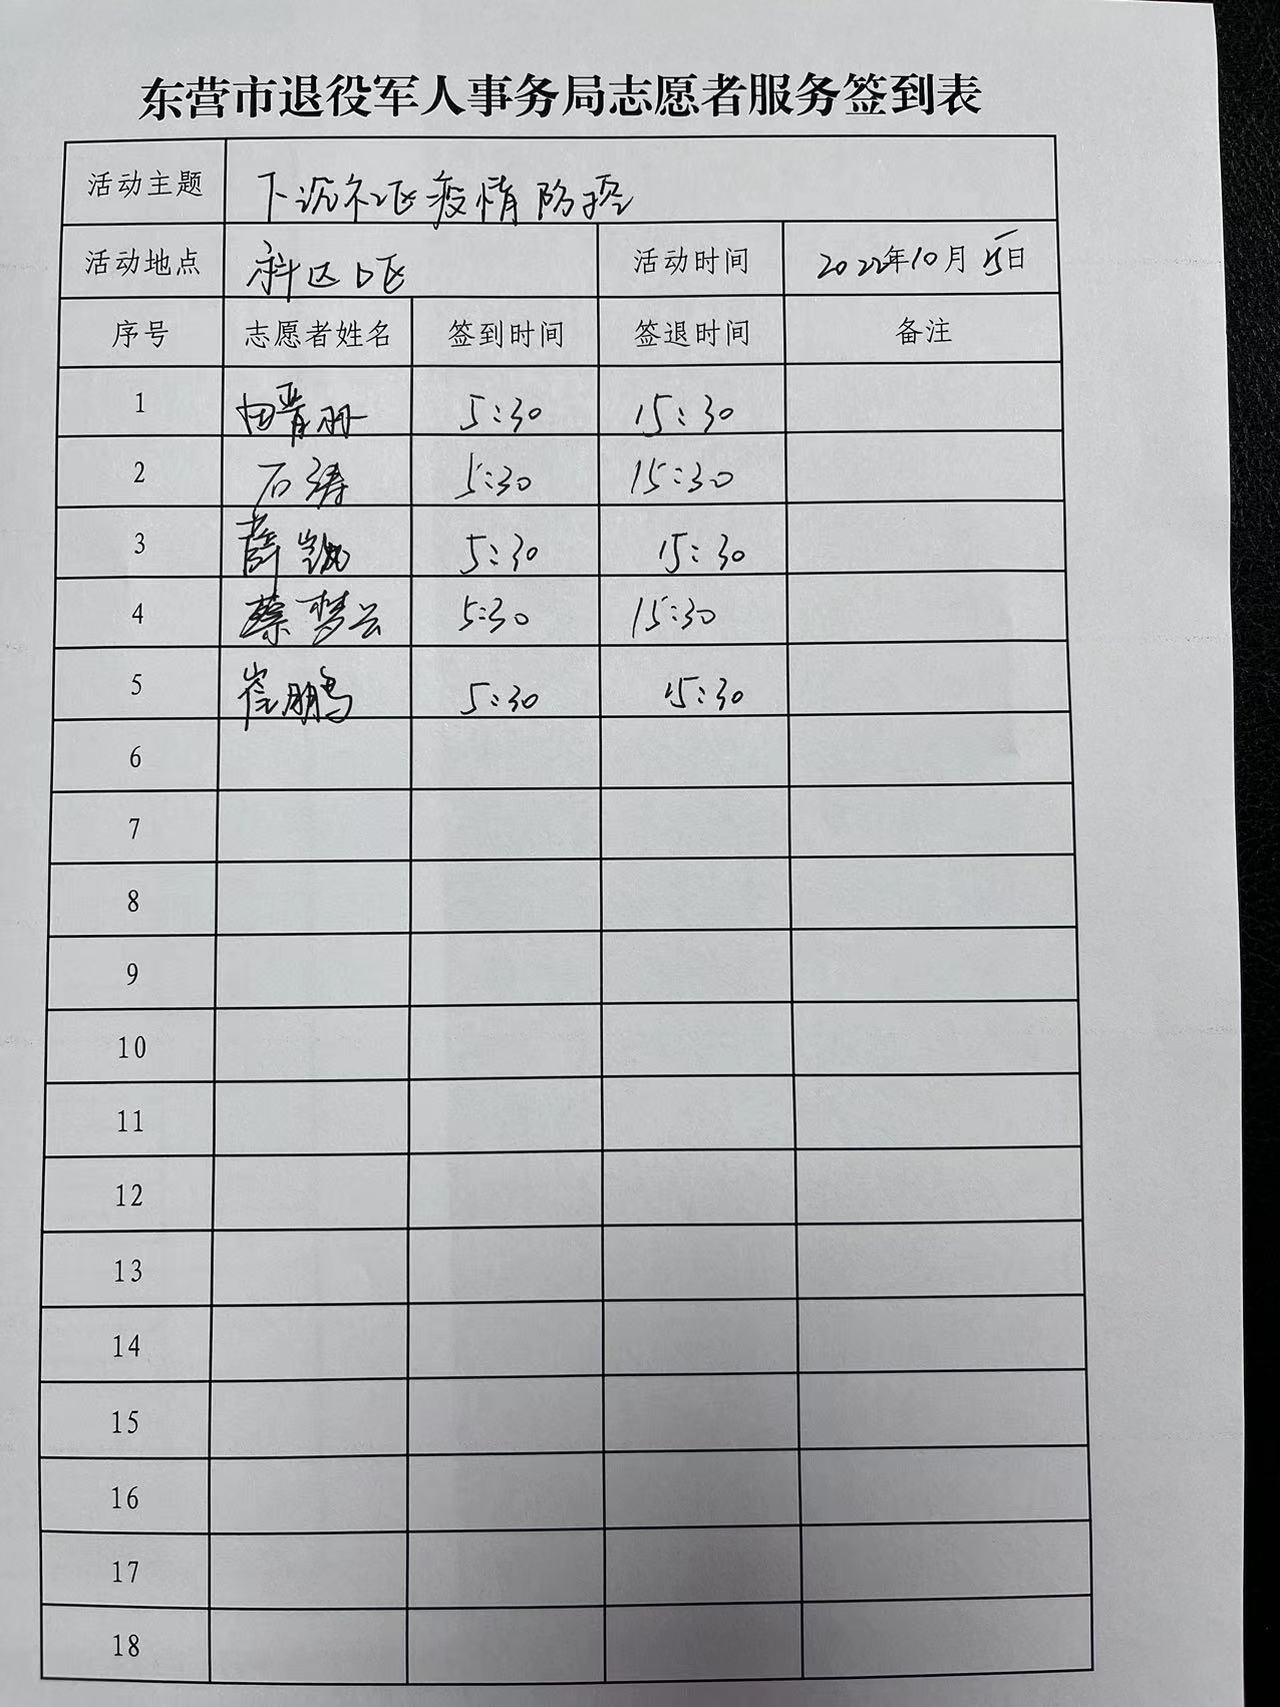 东营市退役军人事务局志愿者服务签到表
活动主题 下沉社区疫情防控
活动地点 科区口区 活动时间 2022年10月15日
序号 志愿者姓名 签到时间 签退时间 备注
1 5:30 15:30
2 石涛 5:30 15:30
3 薛 5:30 15:30
4 蔡梦云 5:30 15:30
5 崔鹏 5:30 15:30
6
7
8
9
10
11
12
13
14
15
16
17
18